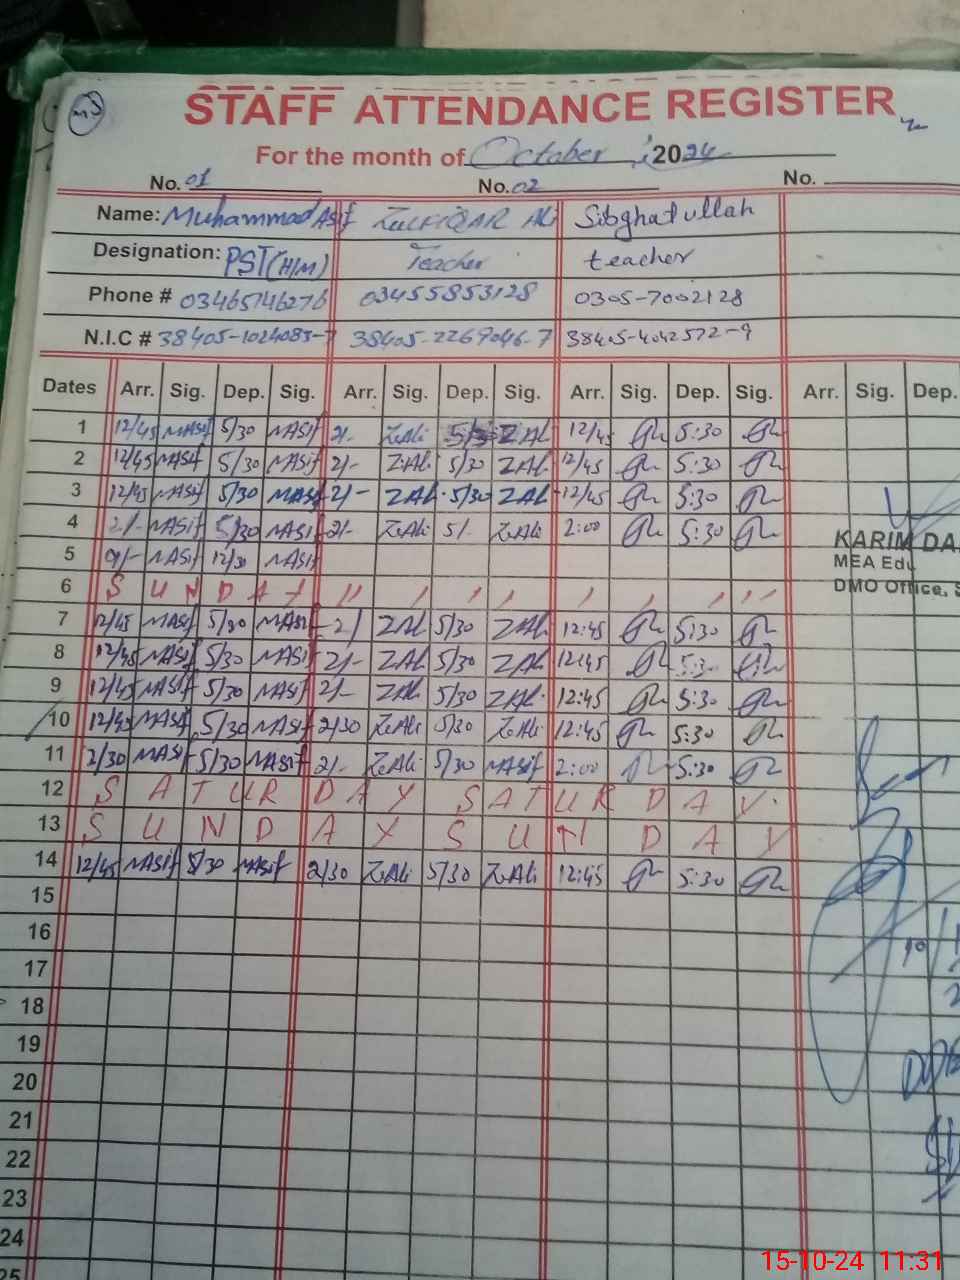 STAFF ATTENDANCE REGISTER
For the month of October 2024
No. 01 No. 02 No.
Name: Muhammad Asif ZULFIQAR Ali Sibghatullah
Designation: PST(H/M) Teacher teacher
Phone # 03465746276 03455853128 0305-7002128
N.I.C # 38405-1024083-7 38405-2267046-7 38405-4042572-9
Dates Arr. Sig. Dep. Sig. Arr. Sig. Dep. Sig. Arr. Sig. Dep. Sig. Arr. Sig. Dep.
1 12/45 MASif 5/30 MASif 2/- Z.Ali 5/30 ZAli 12/45 5:30
2 12/45 MASif 5/30 MASif 2/- Z.Ali 5/30 ZAli 12/45 5:30
3 12/45 MASif 5/30 MASif 2/- ZALi 5/30 ZALi 12/45 5:30
4 2/- MASif 5/30 MASif 2/- Z.Ali 5/. Z.Ali 2:00 5:30
KARIM DA
5 9/- MASif 12/30 MASif
MEA Edu
6 SUNDAY
DMO Office, S
7 12/45 MASif 5/30 MASif 2/ ZALi 5/30 ZALi 12:45 5:30
8 12/45 MASif 5/30 MASif 2/- ZALi 5/30 ZALi 12:45 5:30
9 12/45 MASif 5/30 MASif 2/- ZALi 5/30 ZALi 12:45 5:30
10 12/45 MASif 5/30 MASif 2/30 Z.Ali 5/30 Z.Ali 12:45 5:30
11 2/30 MASif 5/30 MASif 2/- Z.Ali 5/30 MASif 2:00 5:30
12 SATURDAY SATURDAY
13 SUNDAY SUNDAY
14 12/45 MASif 5/30 MASif 2/30 Z.Ali 5/30 Z.Ali 12:45 5:30
15
16
17
18
19
20
21
22
23
24
25
15-10-24 11:31